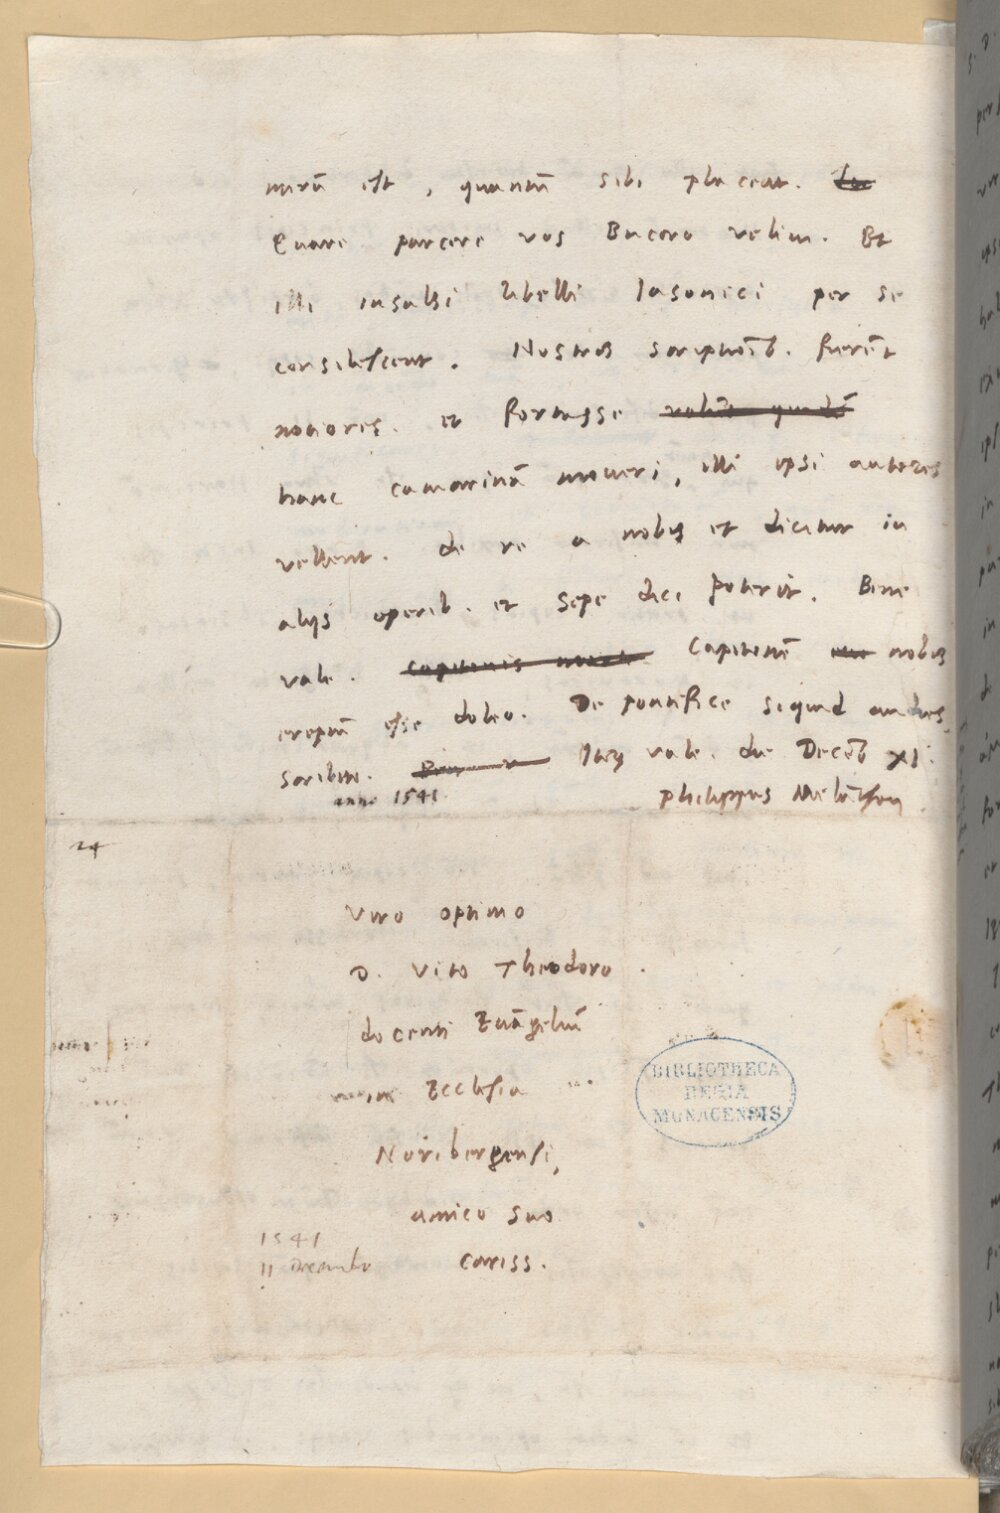 mirū est, quantū sibi placeat.
Quare parcere vos Bucero velim. Et
illi insulsi libelli Iasonici per se
consilescent. Nostris scriptiōib. fierēt
notiores. et fortasse
hanc camarinā moveri, illi ipsi autores
vellent. de re a nobis et dicitur in
alijs operib. et sepe dici poterit. Bene
vale. Capitonē nobis
ereptū esse doleo. De pontifice siquid audies,
scribito. Iterū vale. die Decēb XI.
anno 1541
philippus Melāthon
24
Viro optimo
D. Vito Theodoro
docenti Euāgeliū
in Ecclesia
Noribergensi,
amico suo
cariss.
1541
11 Decembr
BIBLIOTHECA
REGIA
MONACENSIS